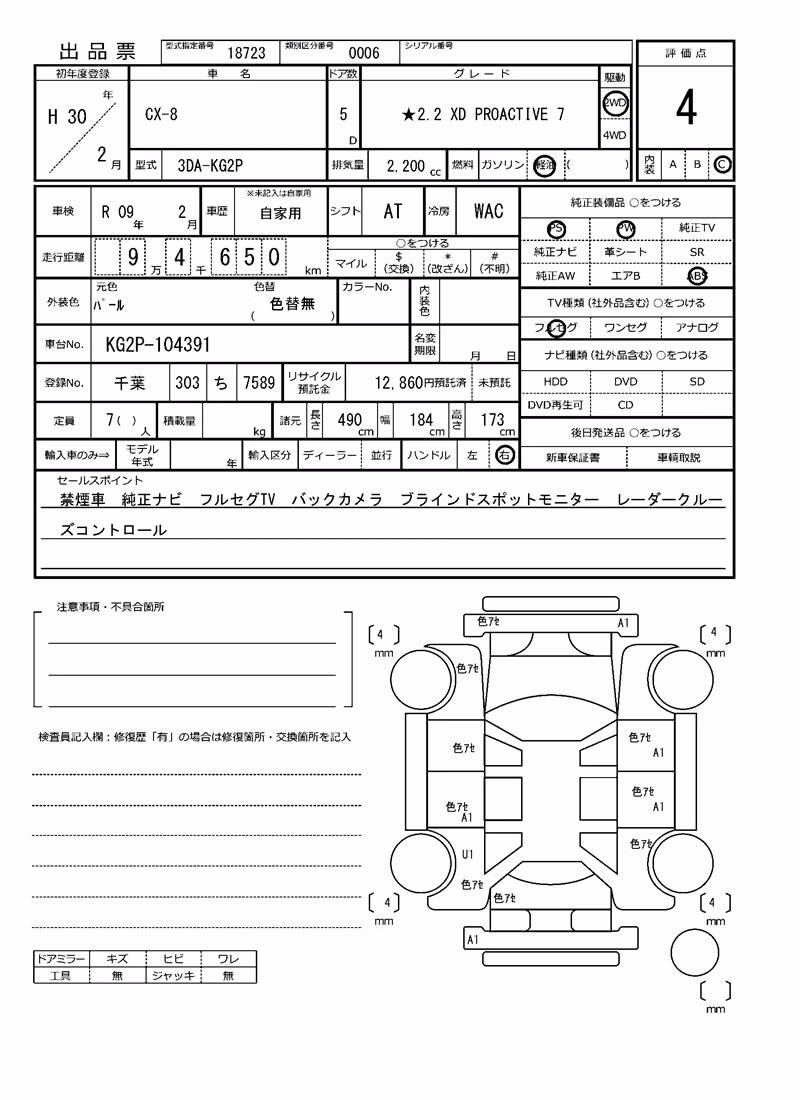 出品票 型式指定番号 18723 類別区分番号 0006 シリアル番号
評価点
初年度登録 車名 ドア数 グレード 駆動
H 30 年 2 月 CX-8 5 D ★2.2 XD PROACTIVE 7 2WD 4WD 4
型式 3DA-KG2P 排気量 2,200 cc 燃料 ガソリン 軽油 ( ) 内装 A B C
車検 R 09 年 2 月 車歴 ※未記入は自家用 自家用 シフト AT 冷房 WAC
純正装備品 ○をつける
PS PW 純正TV
純正ナビ 革シート SR
純正AW エアB ABS
走行距離 9 万 4 千 6 5 0 km ○をつける
マイル $ (交換) * (改ざん) # (不明)
外装色 元色 パール 色替 色替無 ( ) カラーNo. 内装色
TV種類(社外品含む)○をつける
フルセグ ワンセグ アナログ
車台No. KG2P-104391 名変期限 月 日
ナビ種類(社外品含む)○をつける
HDD DVD SD
DVD再生可 CD
登録No. 千葉 303 ち 7589 リサイクル預託金 12,860円預託済 未預託
定員 7( ) 人 積載量 kg 諸元 長さ 490 cm 幅 184 cm 高さ 173 cm
後日発送品 ○をつける
新車保証書 車輌取説
輸入車のみ⇒ モデル年式 年 輸入区分 ディーラー 並行 ハンドル 左 右
セールスポイント
禁煙車 純正ナビ フルセグTV バックカメラ ブラインドスポットモニター レーダークルー
ズコントロール
注意事項・不具合箇所
検査員記入欄:修復歴「有」の場合は修復箇所・交換箇所を記入
色アセ A1
4 mm 4 mm
色アセ
色アセ 色アセ A1
色アセ A1 色アセ A1
U1 色アセ
色アセ 色アセ
4 mm 4 mm
A1
mm
ドアミラー キズ ヒビ ワレ
工具 無 ジャッキ 無